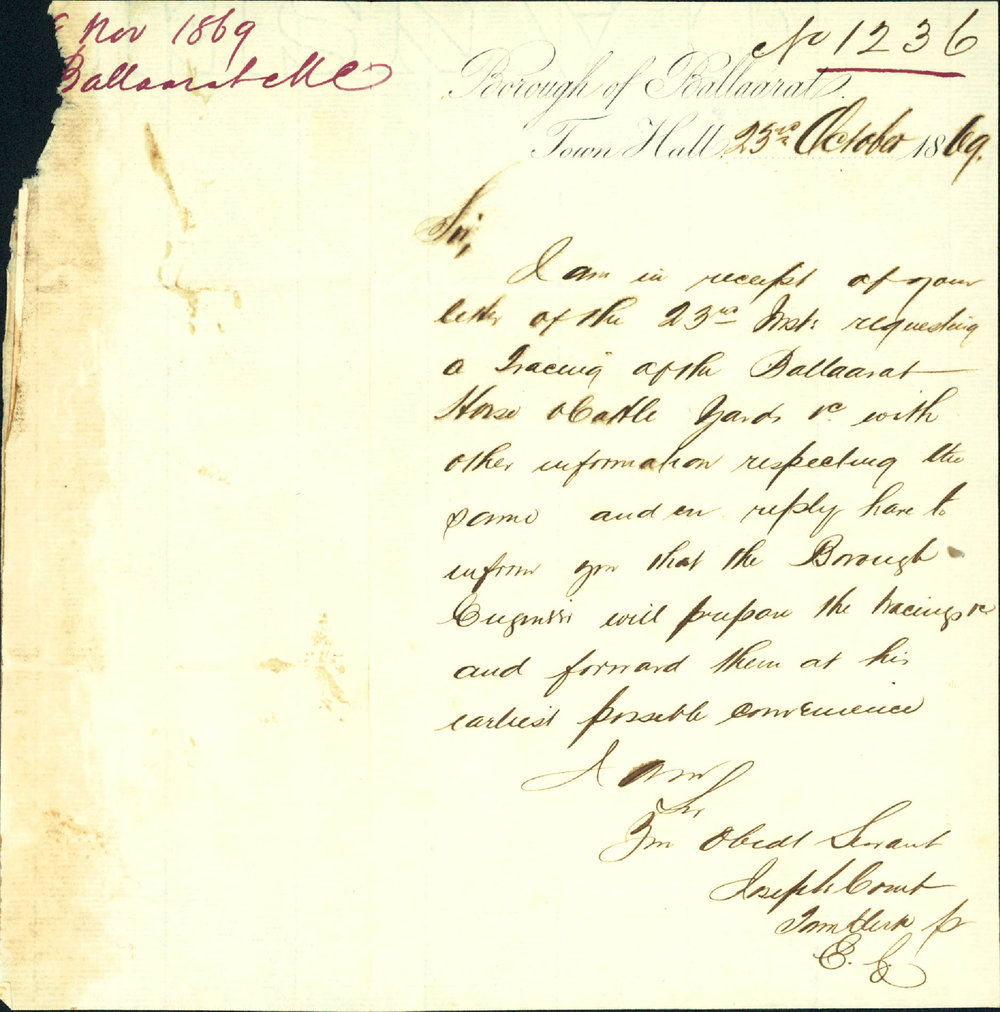 Nov 1869
Ballaarat MC
No 1236
Borough of Ballaarat.
Town Hall, 23rd October 1869.
Sir,
I am in receipt of your
letter of the 23rd Inst: requesting
a Tracing of the Ballaarat
Horse & Cattle Yards &c with
other information respecting the
same and in reply have to
inform you that the Borough
Engineer will prepare the tracings &c
and forward them at his
earliest possible convenience
I am
Sir
Your Obedt Servant
Joseph Comb
Town Clerk pr
E. C.